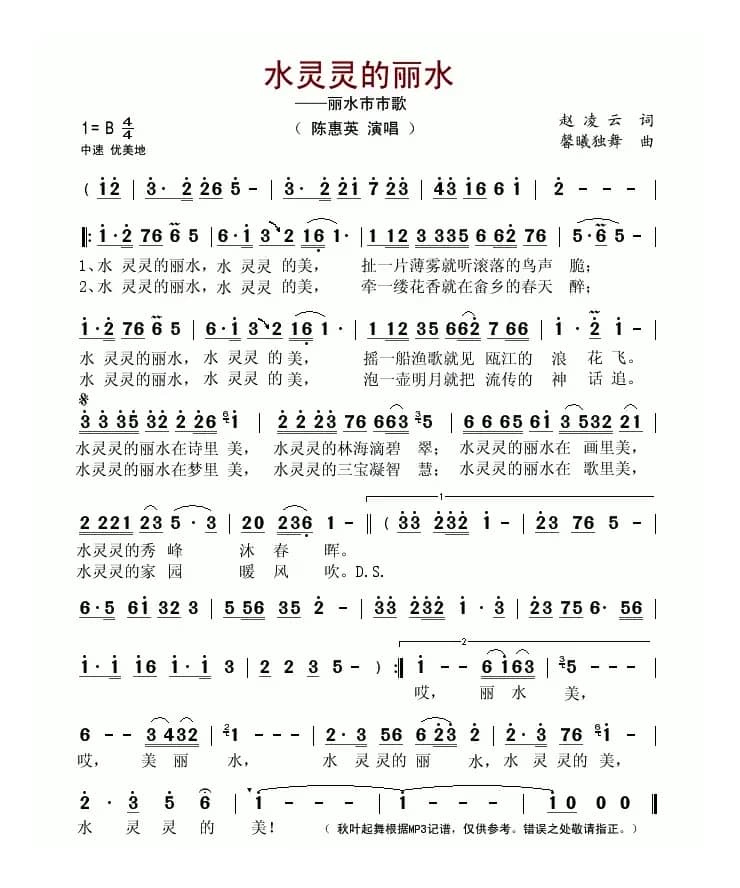 水灵灵的丽水
——丽水市市歌
1= B 4/4
（ 陈惠英 演唱 ）
赵 凌 云 词
中速 优美地
馨曦独舞 曲
( 12 | 3· 2 26 5 - | 3· 2 21 7 23 | 43 16 6 1 | 2 - - - |
‖: 1·2 76 6 5 | 6·1 3 2 16 1· | 1 12 3 335 6 62 76 | 5·6 5 - |
1、水 灵灵的丽水，水 灵灵 的美， 扯一片薄雾就听滚落的鸟声 脆；
2、水 灵灵的丽水，水 灵灵 的美， 牵一缕花香就在畲乡的春天 醉；
1·2 76 6 5 | 6·1 3 2 16 1· | 1 112 35 662 7 66 | 1· 2 1 - |
水 灵灵的丽水，水 灵灵 的 美， 摇一船渔歌就见 瓯江的 浪 花 飞。
水 灵灵的丽水，水 灵灵 的 美， 泡一壶明月就把 流传的 神 话 追。
3 3 35 32 2 26 6 1 | 2 2 23 76 663 3 5 | 6 6 65 61 3 532 21 |
水灵灵的丽水在诗里 美， 水灵灵的林海滴碧 翠； 水灵灵的丽水在 画里美，
水灵灵的丽水在梦里 美， 水灵灵的三宝凝智 慧； 水灵灵的丽水在 歌里美，
1
2 221 23 5 · 3 | 20 236 1 - ‖ ( 33 232 1 - | 23 76 5 - |
水灵灵的秀 峰 沐 春 晖。
水灵灵的家 园 暖 风 吹。D.S.
6·5 61 32 3 | 5 56 35 2 - | 33 232 1 · 3 | 23 75 6· 56 |
2
1·1 16 1·1 3 | 2 2 3 5 - ) :‖ 1 - 6 163 | 3 5 - - - |
哎， 丽 水 美，
6 - - 3 432 | 2 1 - - - | 2·3 56 6 23 2 | 2·3 76 6 1 - |
哎， 美 丽 水， 水 灵灵的 丽 水，水 灵 灵的 美，
2 · 3 5 6 | 1 - - - | - 1 - - | 1 0 0 0 ‖
水 灵 灵 的 美！ （ 秋叶起舞根据MP3记谱，仅供参考。错误之处敬请指正。）